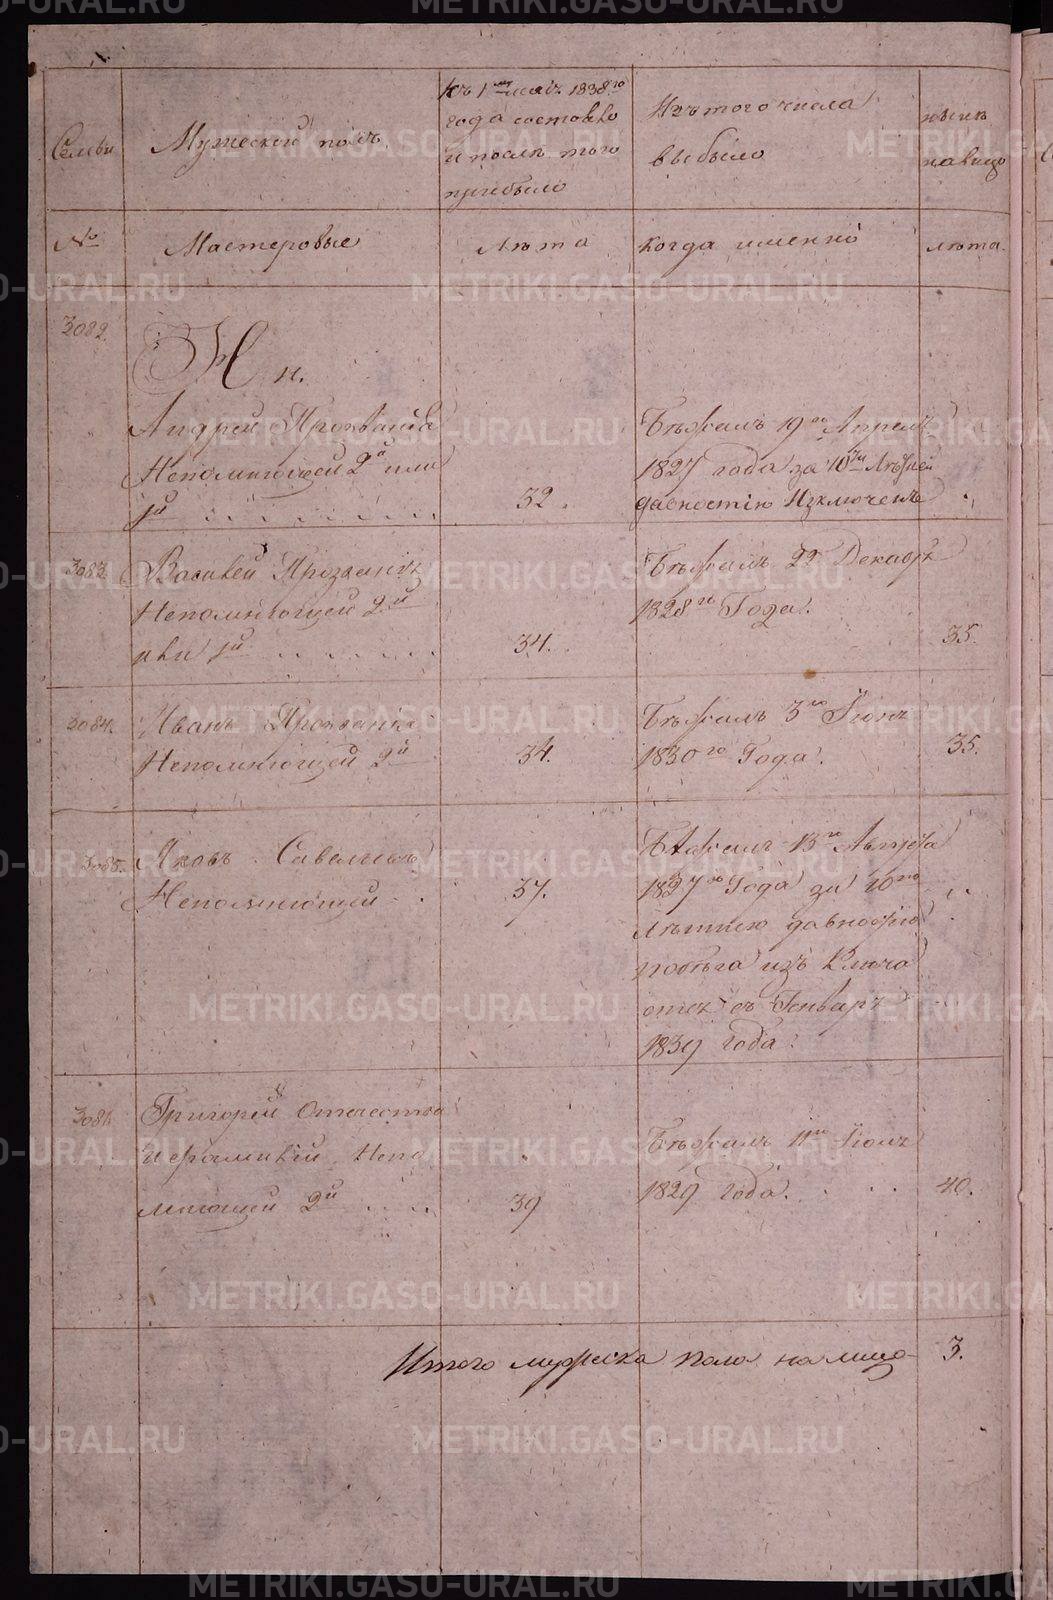 Семьи
Мужеской полъ
Къ 1му маiя 1838го
года состояло
и послѣ того
прибыло
Изъ того числа
выбыло
нынѣ
налицо
№
Мастеровые
Лѣта
когда именно
лѣта.
3082.
Н н.
Андрей Прозванiя
Непомнющей 2й или
1й
32.
Бѣжалъ 19го Апреля
1827 года за 10ти Лѣтней
давностiю Изключенъ
3083.
Василей Прозванiя
Непомнющей 2й
или 1й
34.
Бѣжалъ 22 Декабря
1828го Года.
35.
3084.
Иванъ Прозванiя
Непомнющей 2й
34.
Бѣжалъ 3го Iюня
1830го Года.
35.
3085.
Яковъ Савельевъ
Непомнющей
37.
Бѣжалъ 13го Августа
1827го Года за 10ю
лѣтнею давностiю
побѣга изъ Ключа
отск въ Генварѣ
1839 года.
3086.
Григорей Отечества
и фамилiи Непо
мнющей 2й
39
Бѣжалъ 11го Iюля
1829 года.
40.
Итого мужеска пола на лицо
3.
METRIKI.GASO-URAL.RU